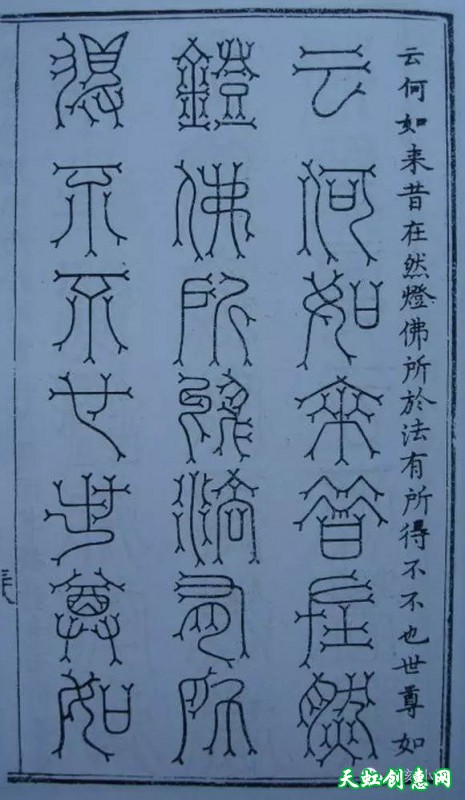 云何如来昔在然燈佛所於法有所得不不也世尊如
云何如來昔在然
鐙佛所於法有所
得不不也世尊如
天虹创惠网